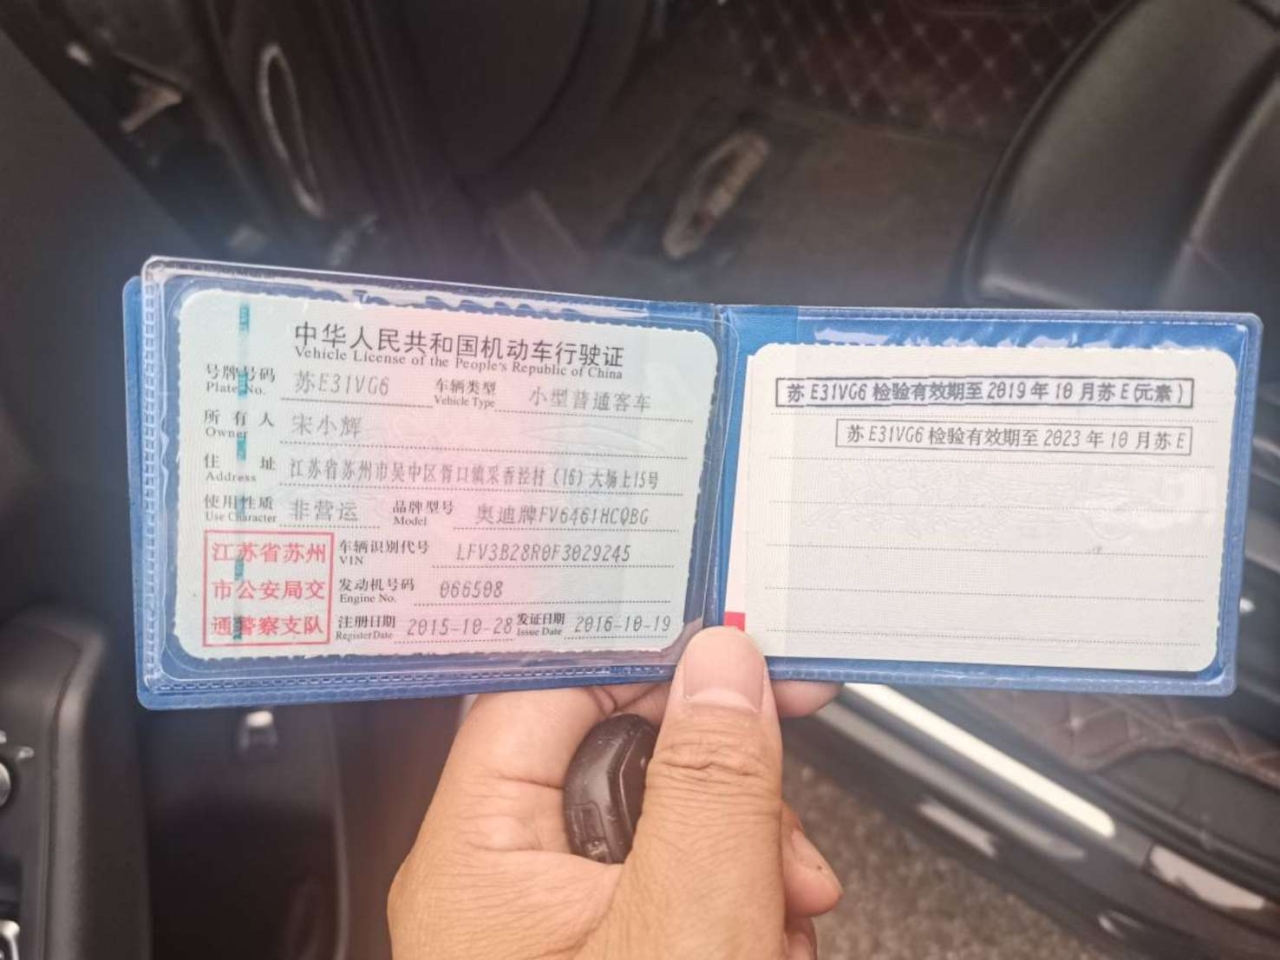 中华人民共和国机动车行驶证
Vehicle License of the People's Republic of China
号牌号码 苏E31VG6 车辆类型 小型普通客车
Plate No. Vehicle Type
所有人 宋小辉
Owner
住址 江苏省苏州市吴中区胥口镇采香泾村(16)大场上15号
Address
使用性质 非营运 品牌型号 奥迪牌FV6461HCQBG
Use Character Model
江苏省苏州
市公安局交
通警察支队
车辆识别代号 LFV3B28R0F3029245
VIN
发动机号码 066508
Engine No.
注册日期 2015-10-28 发证日期 2016-10-19
Register Date Issue Date
苏E31VG6检验有效期至2019年10月苏E(元素)
苏E31VG6检验有效期至2023年10月苏E